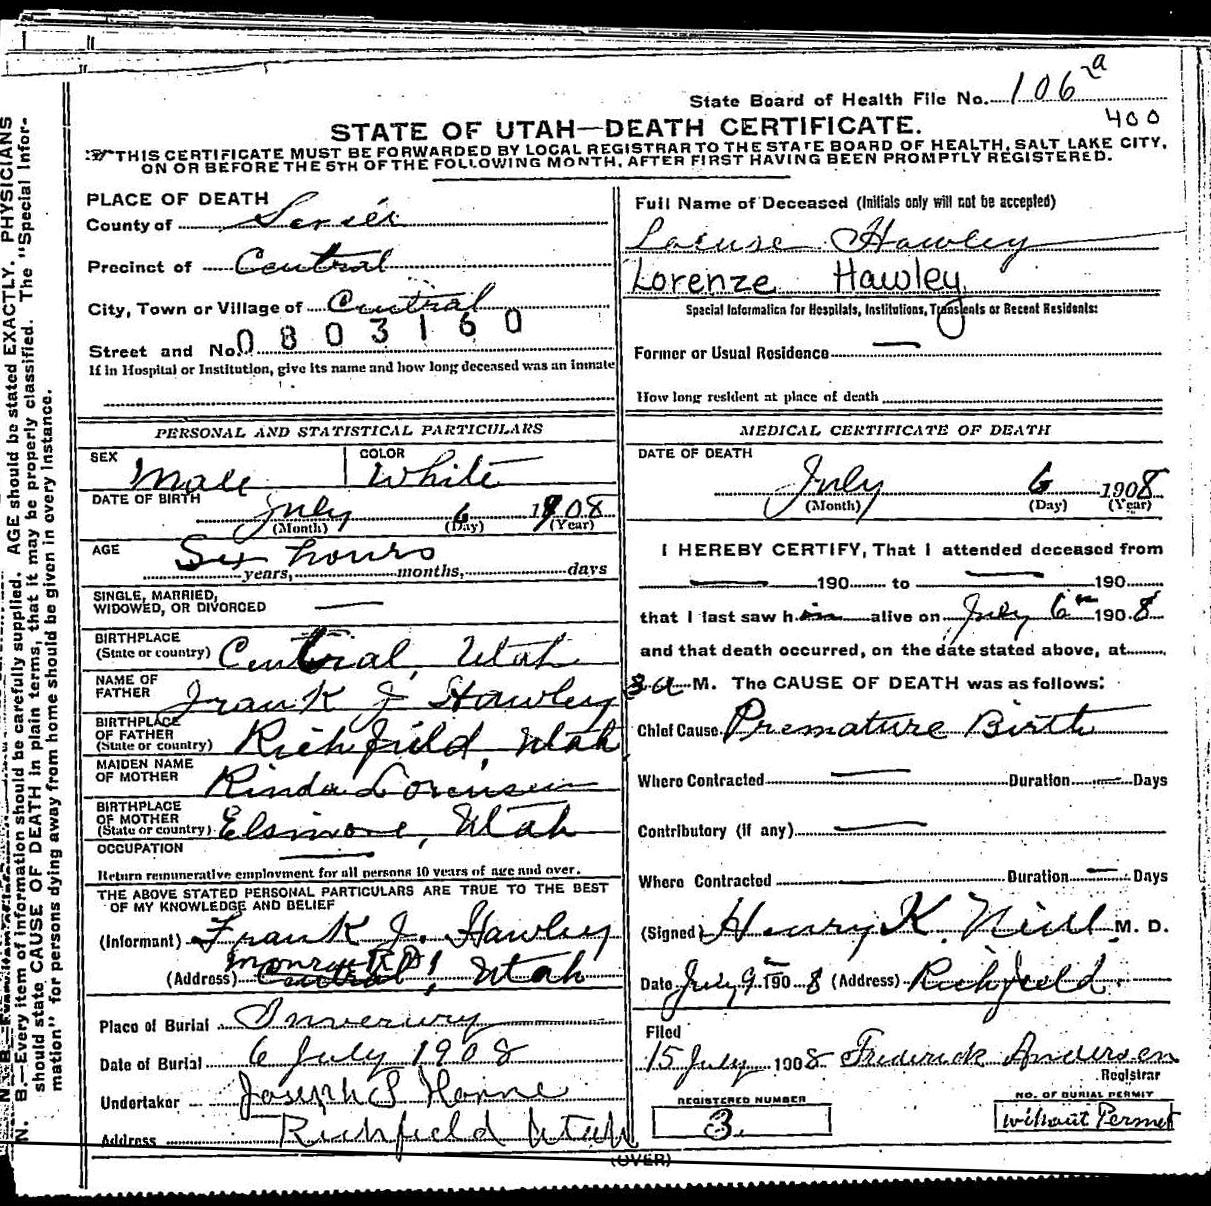 State Board of Health File No. 106 a
400
STATE OF UTAH—DEATH CERTIFICATE.
THIS CERTIFICATE MUST BE FORWARDED BY LOCAL REGISTRAR TO THE STATE BOARD OF HEALTH, SALT LAKE CITY,
ON OR BEFORE THE 5TH OF THE FOLLOWING MONTH, AFTER FIRST HAVING BEEN PROMPTLY REGISTERED.
PLACE OF DEATH
County of Sevier
Precinct of Central
City, Town or Village of Central
0803160
Street and No.
If in Hospital or Institution, give its name and how long deceased was an inmate
Full Name of Deceased (Initials only will not be accepted)
Hawley
Lorenze Hawley
Special Information for Hospitals, Institutions, Transients or Recent Residents:
Former or Usual Residence —
How long resident at place of death
PERSONAL AND STATISTICAL PARTICULARS
SEX Male COLOR White
DATE OF BIRTH July 6 1908
(Month) (Day) (Year)
AGE Six hours
years, months, days
SINGLE, MARRIED,
WIDOWED, OR DIVORCED —
BIRTHPLACE
(State or country) Central, Utah
NAME OF
FATHER Frank J. Hawley
BIRTHPLACE
OF FATHER
(State or country) Richfield, Utah
MAIDEN NAME
OF MOTHER Rinda Lorensen
BIRTHPLACE
OF MOTHER
(State or country) Elsinore, Utah
OCCUPATION —
Return remunerative employment for all persons 10 years of age and over.
THE ABOVE STATED PERSONAL PARTICULARS ARE TRUE TO THE BEST
OF MY KNOWLEDGE AND BELIEF
(Informant) Frank J. Hawley
Monroe
(Address) Central, Utah
Place of Burial Inverury
Date of Burial 6 July 1908
Undertaker Joseph S Horne
Address Richfield Utah
MEDICAL CERTIFICATE OF DEATH
DATE OF DEATH
July 6 1908
(Month) (Day) (Year)
I HEREBY CERTIFY, That I attended deceased from
— 190 to — 190
that I last saw him alive on July 6th 1908
and that death occurred, on the date stated above, at
8 a M. The CAUSE OF DEATH was as follows:
Chief Cause Premature Birth
Where Contracted — Duration — Days
Contributory (if any) —
Where Contracted — Duration — Days
(Signed) Henry K. Neill M. D.
Date July 9th 1908 (Address) Richfield
Filed
15 July 1908 Frederick Andersen
Registrar
REGISTERED NUMBER
3.
NO. OF BURIAL PERMIT
without Permet
(OVER)
N. B.—Every item of information should be carefully supplied. AGE should be stated EXACTLY. PHYSICIANS
should state CAUSE OF DEATH in plain terms, that it may be properly classified. The "Special Infor-
mation" for persons dying away from home should be given in every instance.